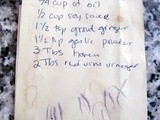 1/4 cup of oil
1/2 cup soy sauce
1 1/2 tsp ground ginger
1 1/2 tsp garlic powder
3 Tbs honey
2 Tbs red wine vinegar